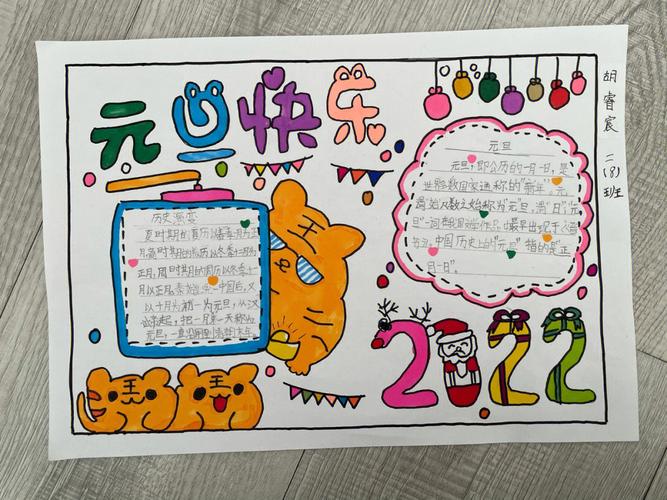 元旦快乐
胡睿宸 二(8)班
元旦
元旦,即公历的一月一日,是
世界多数国家通称的"新年"。元,
谓"始",凡数之始称为"元";旦,谓"日";"元
旦"
中国历史上的"元旦"指的是"正
月一日"。
历史演变
夏时期的夏历以春季一月为正
月,商时期的殷历以冬季十二月为
正月,周时期的周历以冬季十一
月以正月。秦始皇统一中国后,又
以十月初一为元旦,从汉
起,把一月第一天称为
元旦,一直沿用到
2022